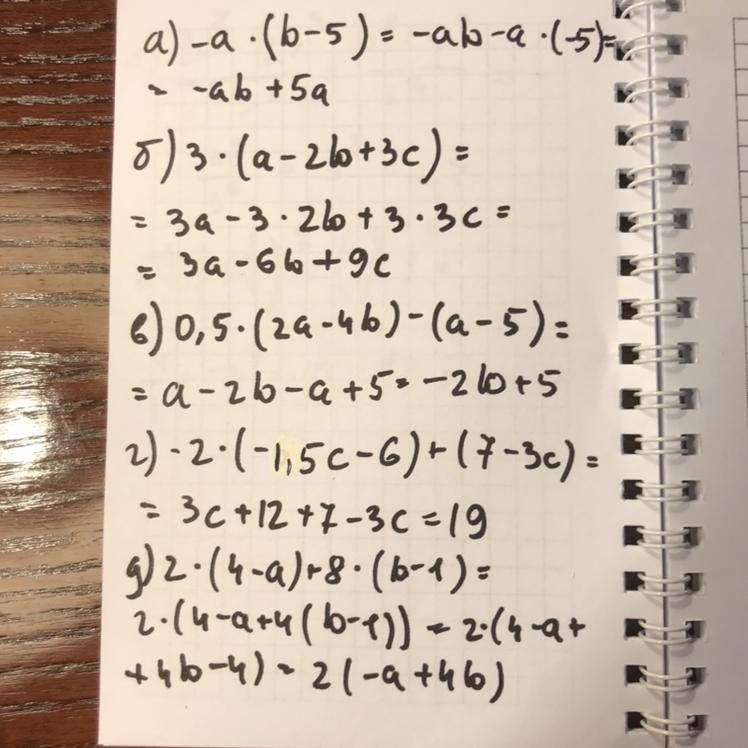 а) -a · (b-5) = -ab-a · (-5)=
= -ab+5a
б) 3 · (a-2b+3c) =
= 3a-3 · 2b+3 · 3c =
= 3a-6b+9c
в) 0,5 · (2a-4b)-(a-5)=
= a-2b-a+5 = -2b+5
г) -2 · (-1,5c-6)+(7-3c) =
= 3c+12+7-3c=19
д) 2 · (4-a)+8 · (b-1)=
2·(4-a+4(b-1)) = 2·(4-a+
+4b-4) = 2(-a+4b)